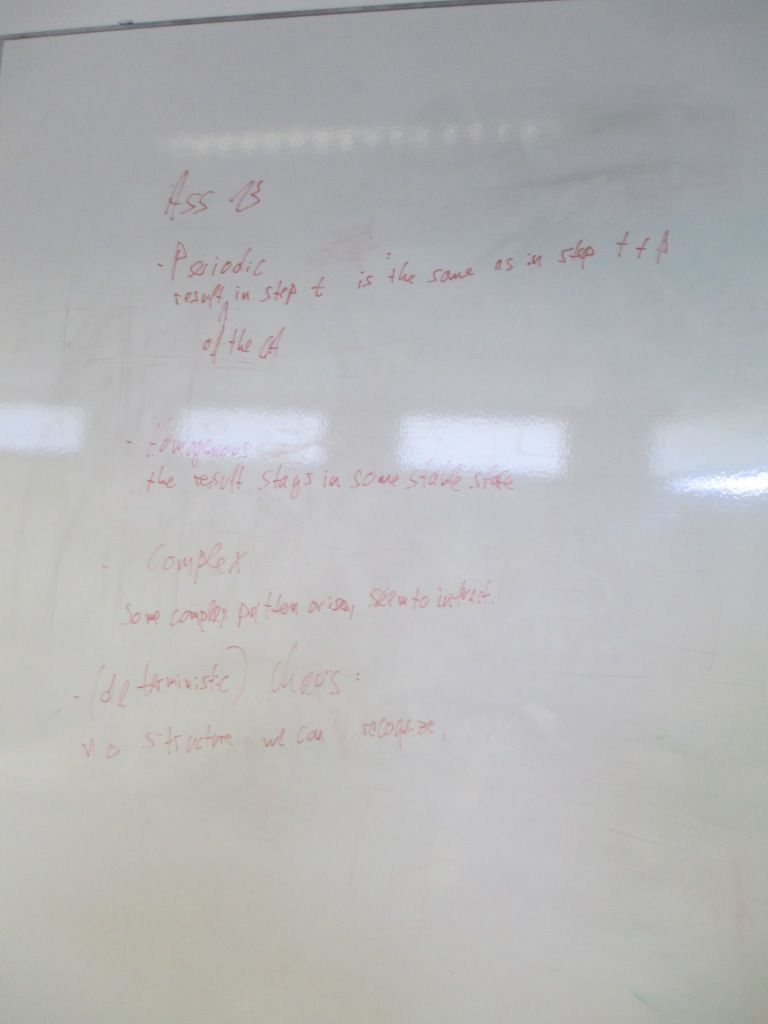 Ass 13
- Periodic
result in step t is the same as in step t +
of the CA
- Homogenous
the result stays in some stable state
- Complex
Some complex pattern arises, seem to interact.
- (deterministic) Chaos:
No structure we can recognize.